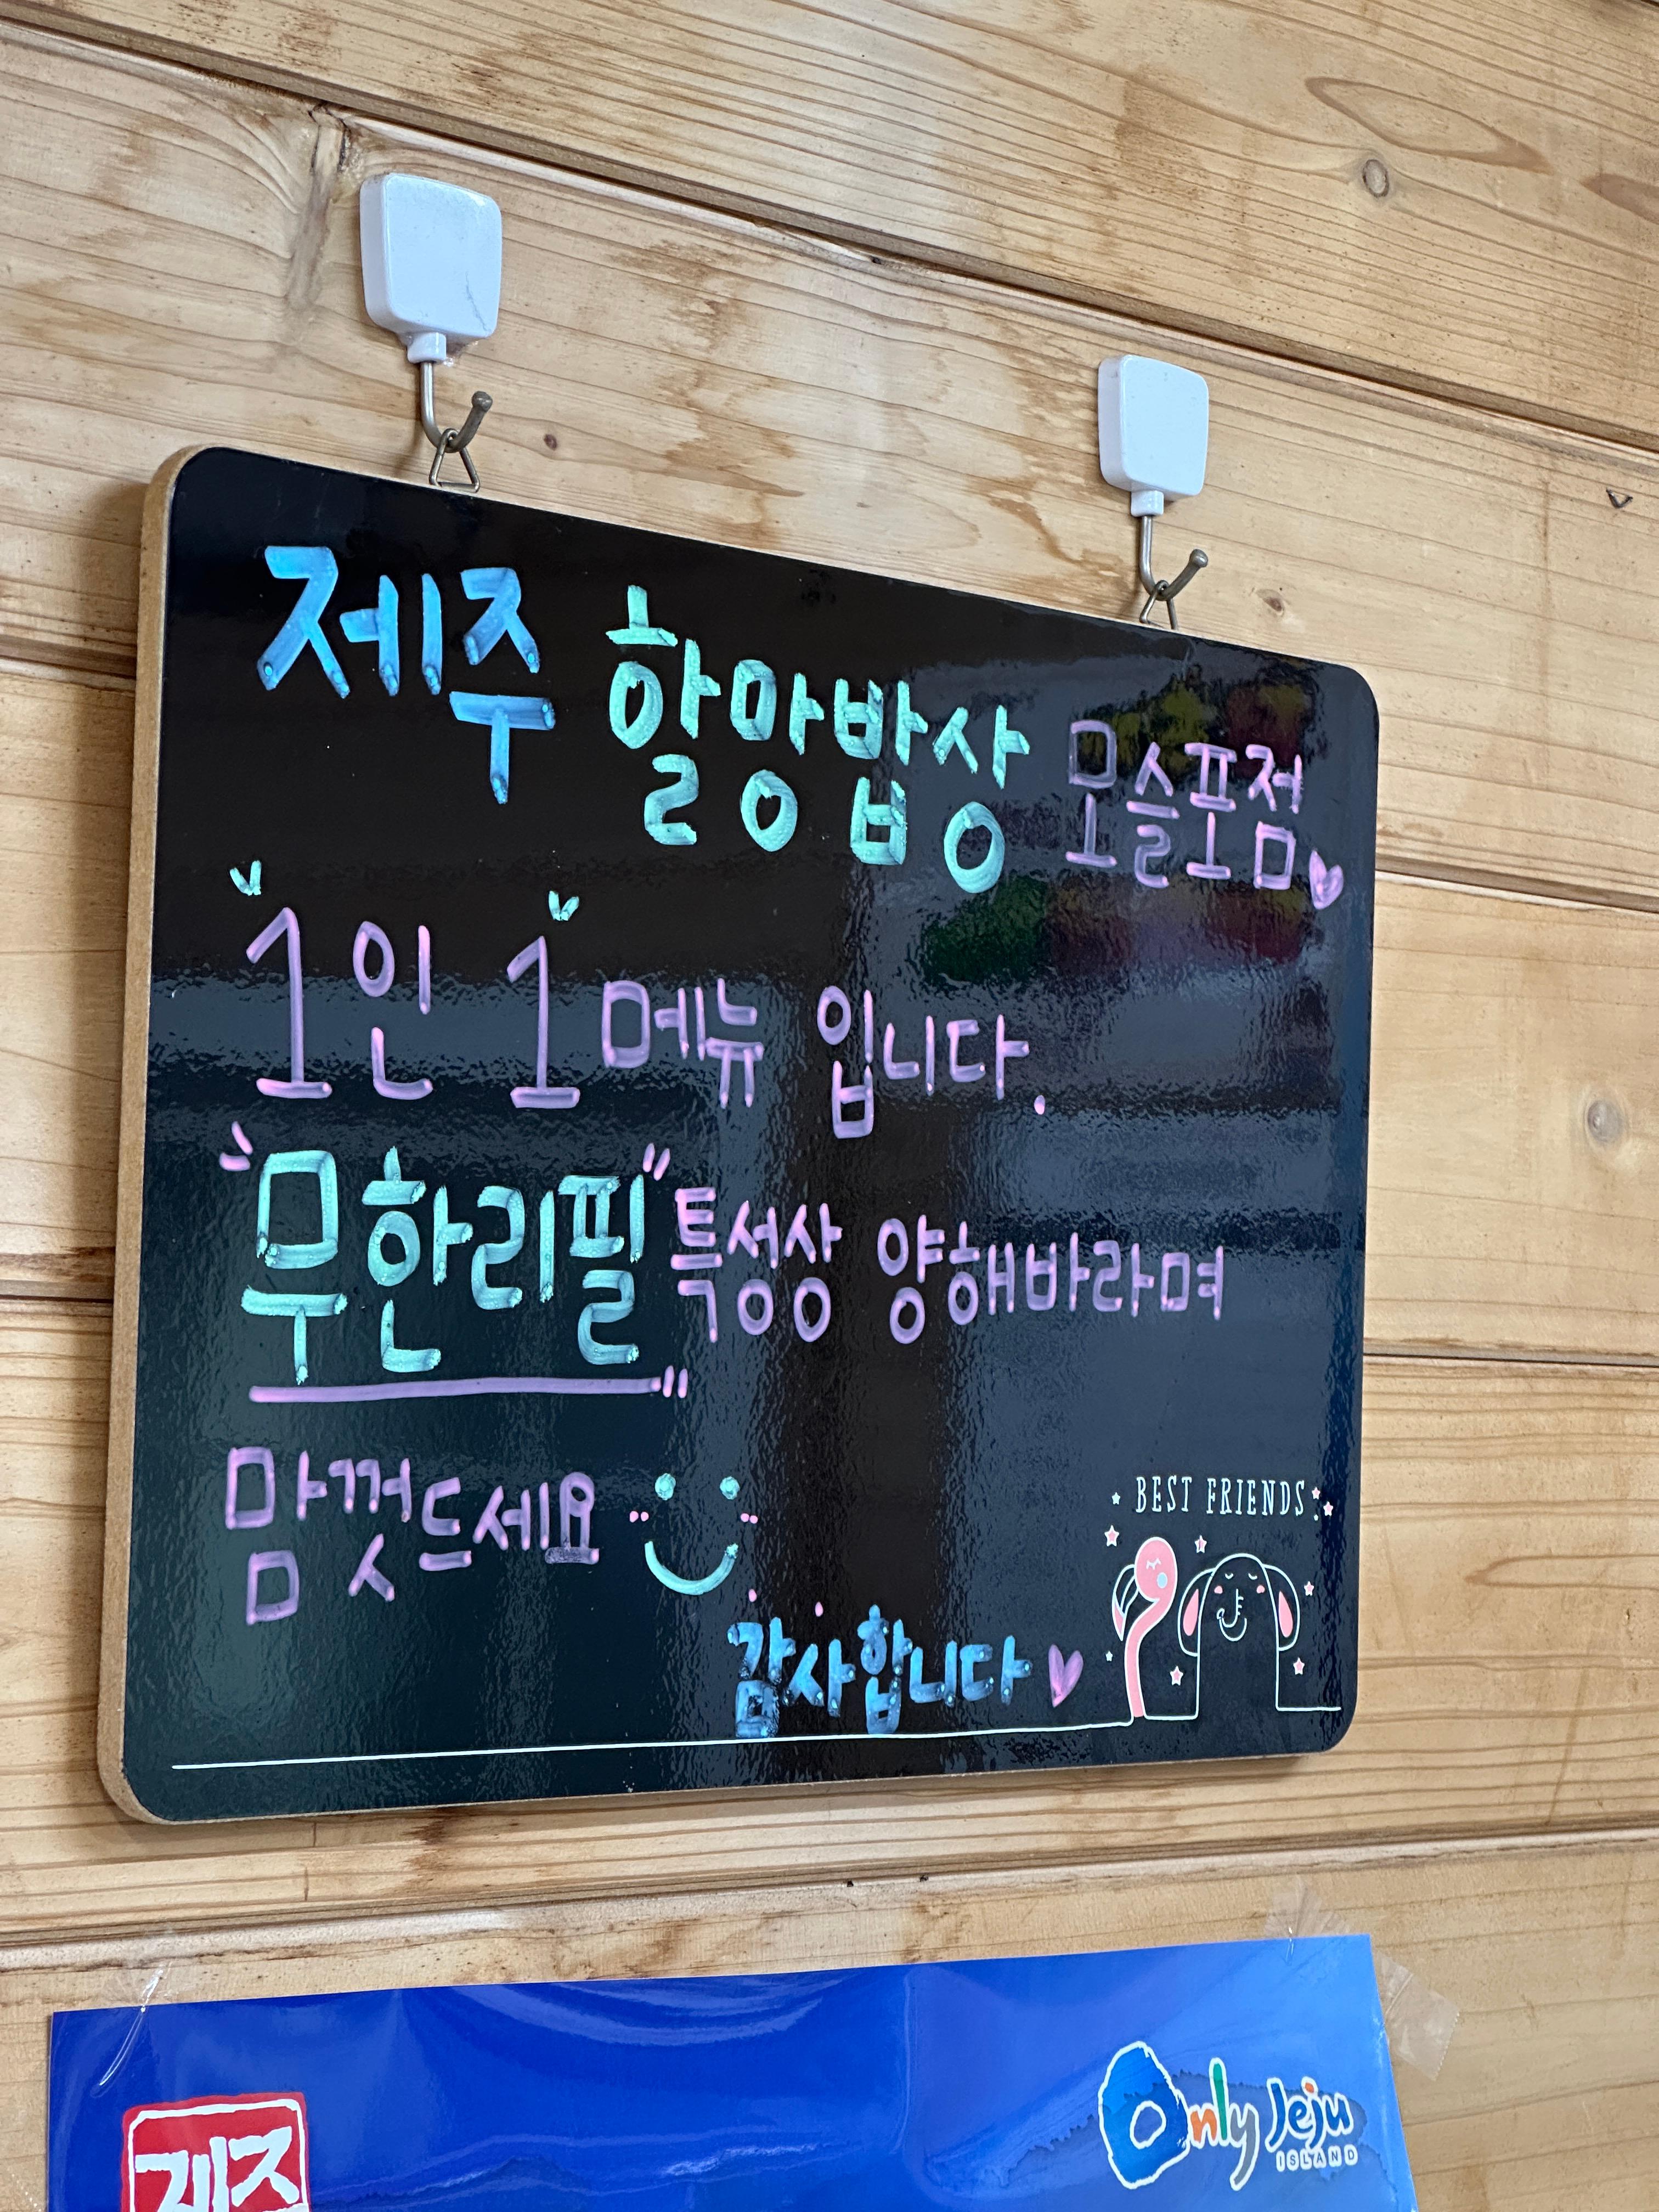 제주 할망밥상 모슬포점
1인 1메뉴 입니다.
"무한리필" 특성상 양해바라며
맘껏드세요
감사합니다
BEST FRIENDS
제주
Only Jeju
ISLAND